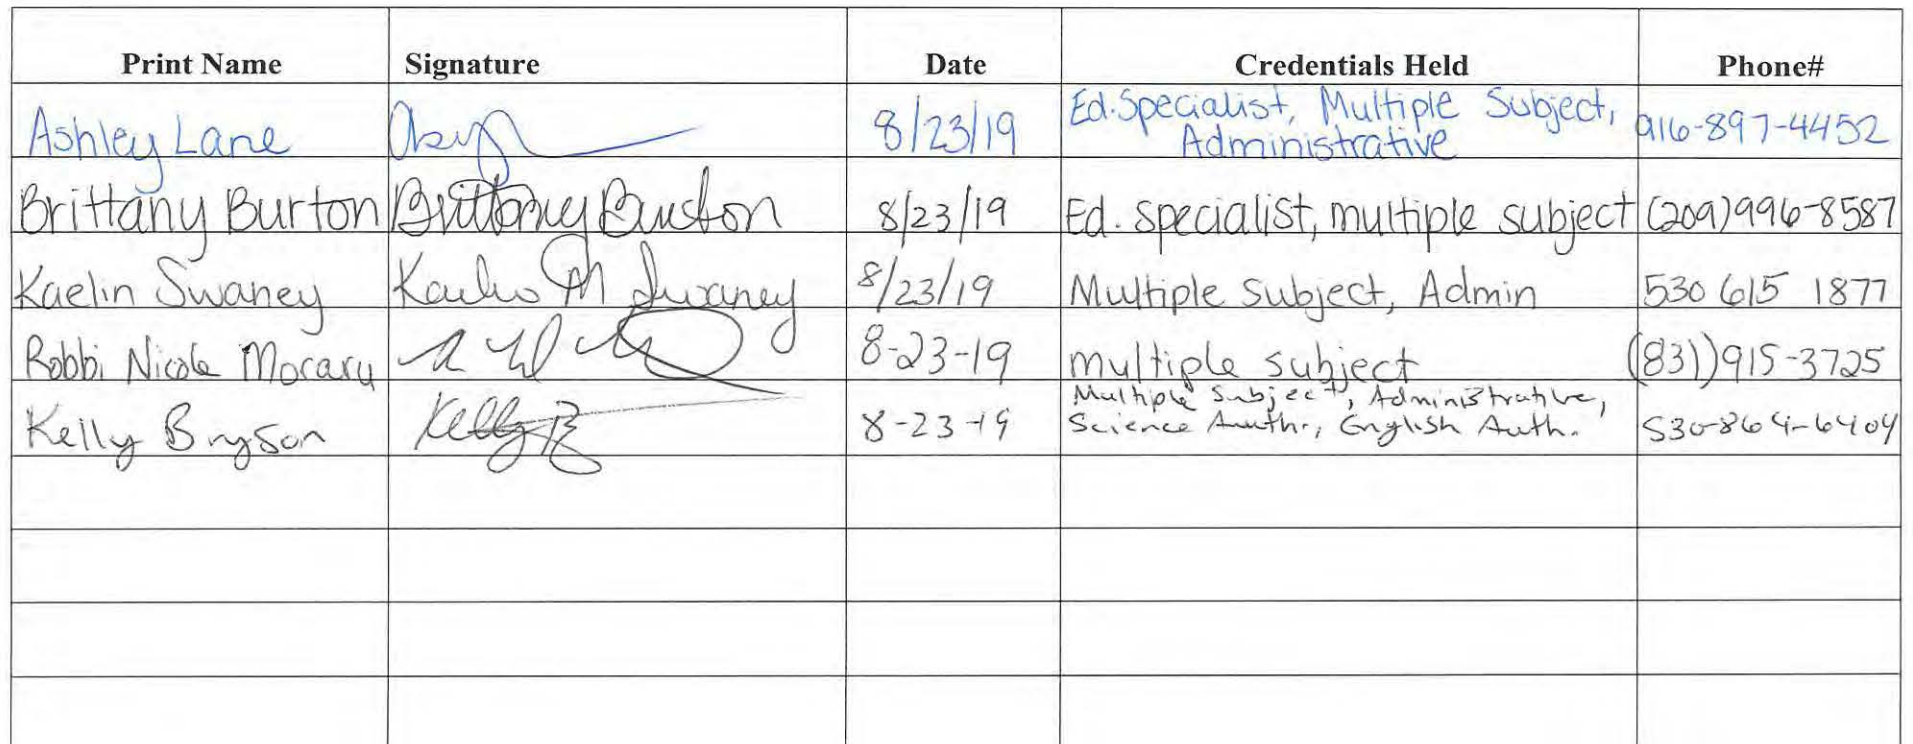 Print Name Signature Date Credentials Held Phone#
Ashley Lane 8/23/19 Ed. Specialist, Multiple Subject, 916-897-4452
Administrative
Brittany Burton Brittany Burton 8/23/19 Ed. specialist, multiple subject (209)996-8587
Kaelin Swaney Kaelin M Swaney 8/23/19 Multiple Subject, Admin 530 615 1877
Robbi Nicole Moraru 8-23-19 multiple subject (831)915-3725
Kelly Bryson Kelly B 8-23-19 Multiple Subject, Administrative, 530-864-6404
Science Auth., English Auth.